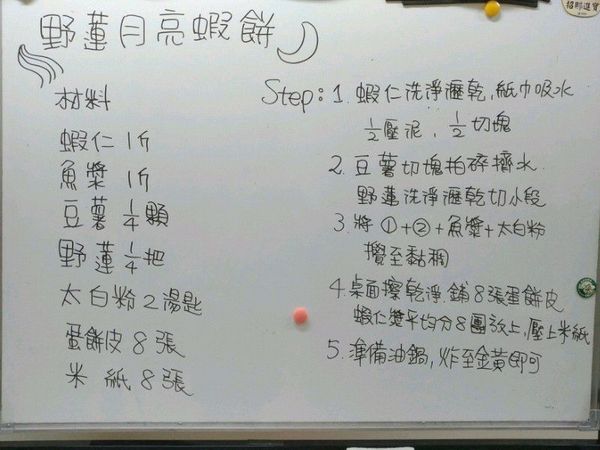 招財進寶
野蓮月亮蝦餅
材料
蝦仁 1斤
魚漿 1斤
豆薯 1/4 顆
野蓮 1/4 把
太白粉 2 湯匙
蛋餅皮 8 張
米 紙 8 張
Step: 1. 蝦仁洗淨瀝乾, 紙巾吸水
1/2 壓泥, 1/2 切塊
2. 豆薯切塊拍碎擠水
野蓮洗淨瀝乾切小段
3. 將 ①+②+魚漿+太白粉
攪至黏稠
4. 桌面擦乾淨, 鋪8張蛋餅皮
蝦仁漿平均分8團放上, 壓上米紙
5. 準備油鍋, 炸至金黃即可